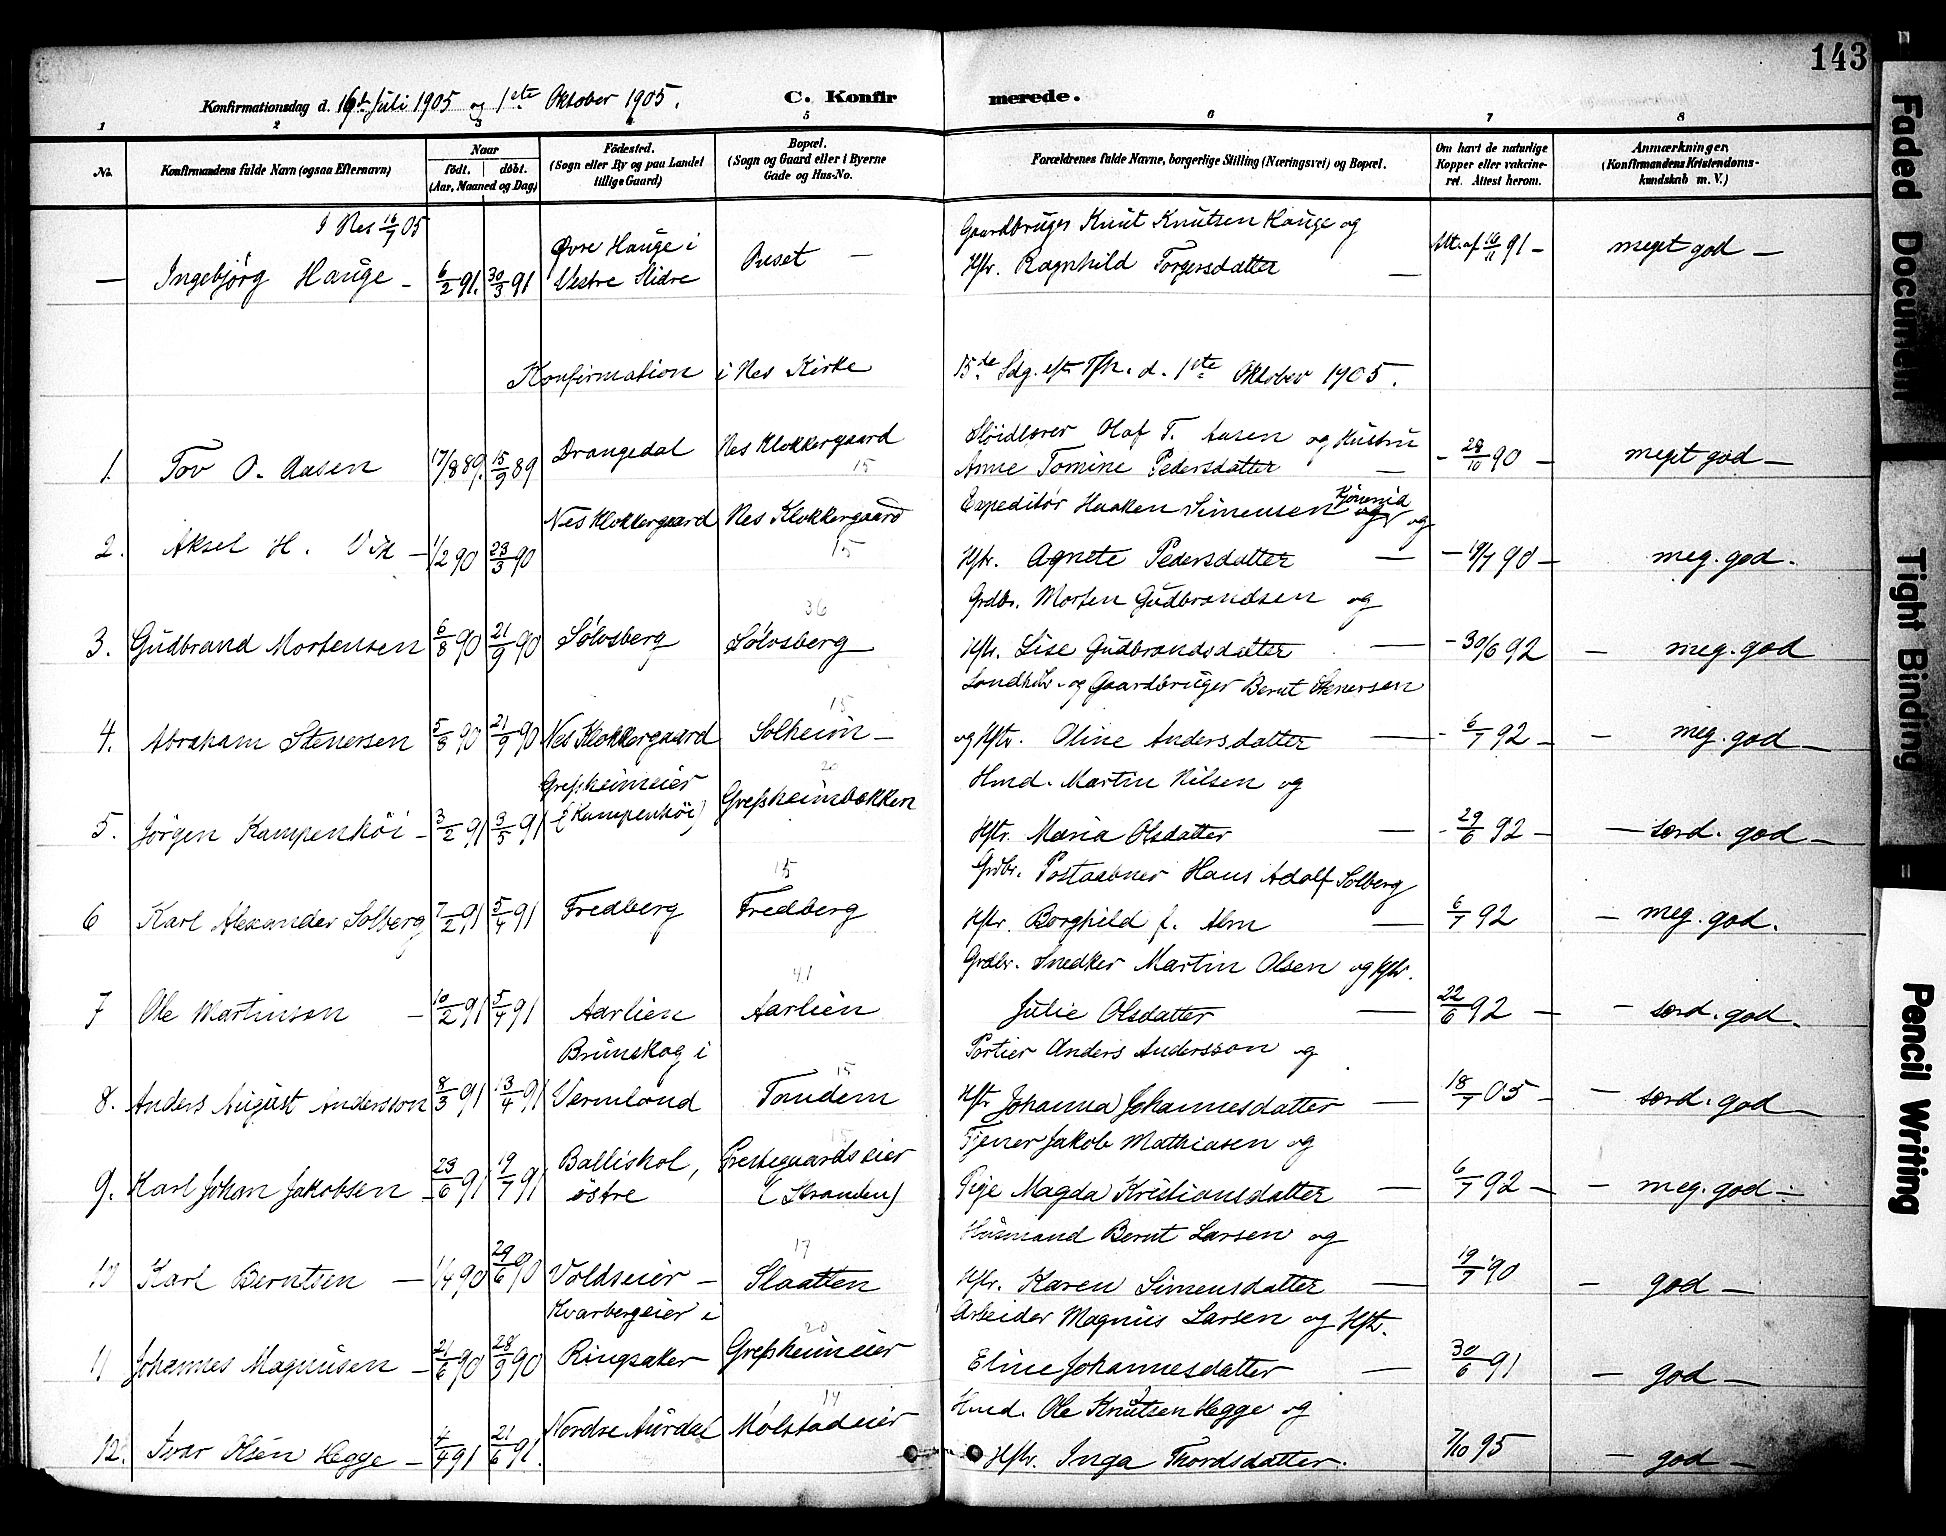 143
Konfirmationsdag d. 16de Juli 1905 og 1ste Oktober 1905.
C. Konfirmerede.
1 2 3 4 5 6 7 8
No.
Konfirmandens fulde Navn (ogsaa Efternavn)
Naar
født. døbt.
(Aar, Maaned og Dag)
Fødested.
(Sogn eller By og paa Landet
tillige Gaard)
Bopæl.
(Sogn og Gaard eller i Byerne
Gade og Hus-No.
Forældrenes fulde Navne, borgerlige Stilling (Næringsvei) og Bopæl.
Om havt de naturlige
Kopper eller vakcine-
ret. Attest herom.
Anmærkninger,
(Konfirmandens Kristendoms-
kundskab m. V.)
I Nes 16/7 05
— Ingebjørg Hauge – 6/2 91. 30/3 91
Øvre Hauge i
Vestre Slidre
Gaardbruger Knut Knutsen Hauge og
Hstr. Ragnhild Torgersdatter —
Att. af 16/11 91 – meget god —
Konfirmation i Nes Kirke 15de Sdg. eft. Tfh. d. 1ste Oktober 1905.
1. Tov O. Aasen 17/8 89. 15/9 89 Drangedal Nes Klokkergaard
15
Sløidlærer Olaf T. Aasen og Hustru
Anne Tomine Pedersdatter —
– 28/10 90 – meget god —
2. Aksel H. Vik – 1/2 90 23/3 90 Nes Klokkergaard Nes Klokkergaard
15
Expeditør Haaken Simensen og
Hstr. Agnete Pedersdatter —
– 19/7 90 – meg. god.
3. Gudbrand Mortensen 6/8 90 21/9 90 Sølvsberg Sølvsberg
36
Grdbr. Morten Gudbrandsen og
Hstr. Lise Gudbrandsdatter —
– 30/6 92 – meg. god
4. Abraham Stenersen 5/8 90 21/9 90 Nes Klokkergaard Solheim –
15
Landhdr. og Gaardbruger Bernt Stenersen
og Hstr. Oline Andersdatter —
– 6/7 92 – – meg. god —
5. Jørgen Kampenhøi – 3/2 91 3/5 91
Gresheimeier
(Kampenhøi)
20
Gresheimbakken
Hmd. Martin Nilsen og
Hstr. Maria Olsdatter —
– 29/6 92 – – særd. god —
6 Karl Alexander Solberg 7/2 91 5/4 91 Fredberg Fredberg
15
Grdbr. Postaabner Hans Adolf Solberg
Hstr. Borghild f. Alm —
6/7 92 – meg. god.
7 Ole Martinsen – 10/2 91 5/4 91 Aarlien Aarlien
41
Grdbr. Snedker Martin Olsen og Hstr.
Julie Olsdatter —
22/6 92 – – særd. god.
8. Anders August Andersson 8/3 91 13/4 91
Brunskog i
Vermland
15
Tandem
Portier Anders Andersson og
Hstr Johanna Johannesdatter —
18/7 05 – – særd. god —
9. Karl Johan Jakobsen – 23/6 91 19/7 91
Balliskol,
østre
Prestegaardseier
(Stranden)
Tjener Jakob Mathiasen og
Pige Magda Kristiansdatter —
6/7 92 – – meg. god –
10 Karl Berntsen – 1/4 90 29/6 90 Voldseier – Slaatten
17
Husmand Bernt Larsen og
Hstr. Karen Simensdatter —
19/7 90 – god —
11 Johannes Magnusen – 21/6 90 28/9 90
Kvarbergeier i
Ringsaker
20
Gresheimeier
Arbeider Magnus Larsen og Hstr.
Eline Johannesdatter —
30/6 91 – god —
12. Ivar Olsen Hegge – 4/4 91 21/6 91. Nordre Aurdal Mølstadeier
14
Hmd. Ole Knutsen Hegge og
Hstr. Inga Thordsdatter.
7/10 95 – god —
Faded Document
Tight Binding
Pencil Writing